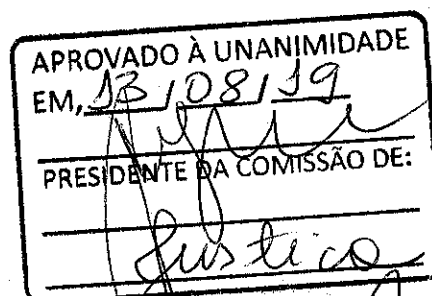 APROVADO À UNANIMIDADE
EM, 13 / 08 / 19
PRESIDENTE DA COMISSÃO DE:
Justiça